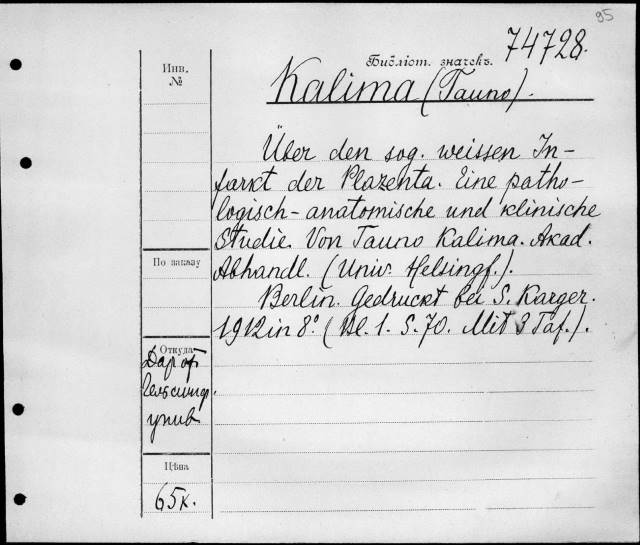 95
74728.
Инв.
№
Библіот. значекъ.
Kalima (Tauno).
Über den sog. weissen In-
farkt der Plazenta. Eine patho-
logisch-anatomische und klinische
Studie. Von Tauno Kalima. Akad.
По заказу
Abhandl. (Univ. Helsingf.).
Berlin. Gedruckt bei S. Karger.
1912 in 8° (Bl. 1. S. 70. Mit 3 Taf.).
Откуда
Дар от
Гельсингф.
унив
Цѣна
65к.